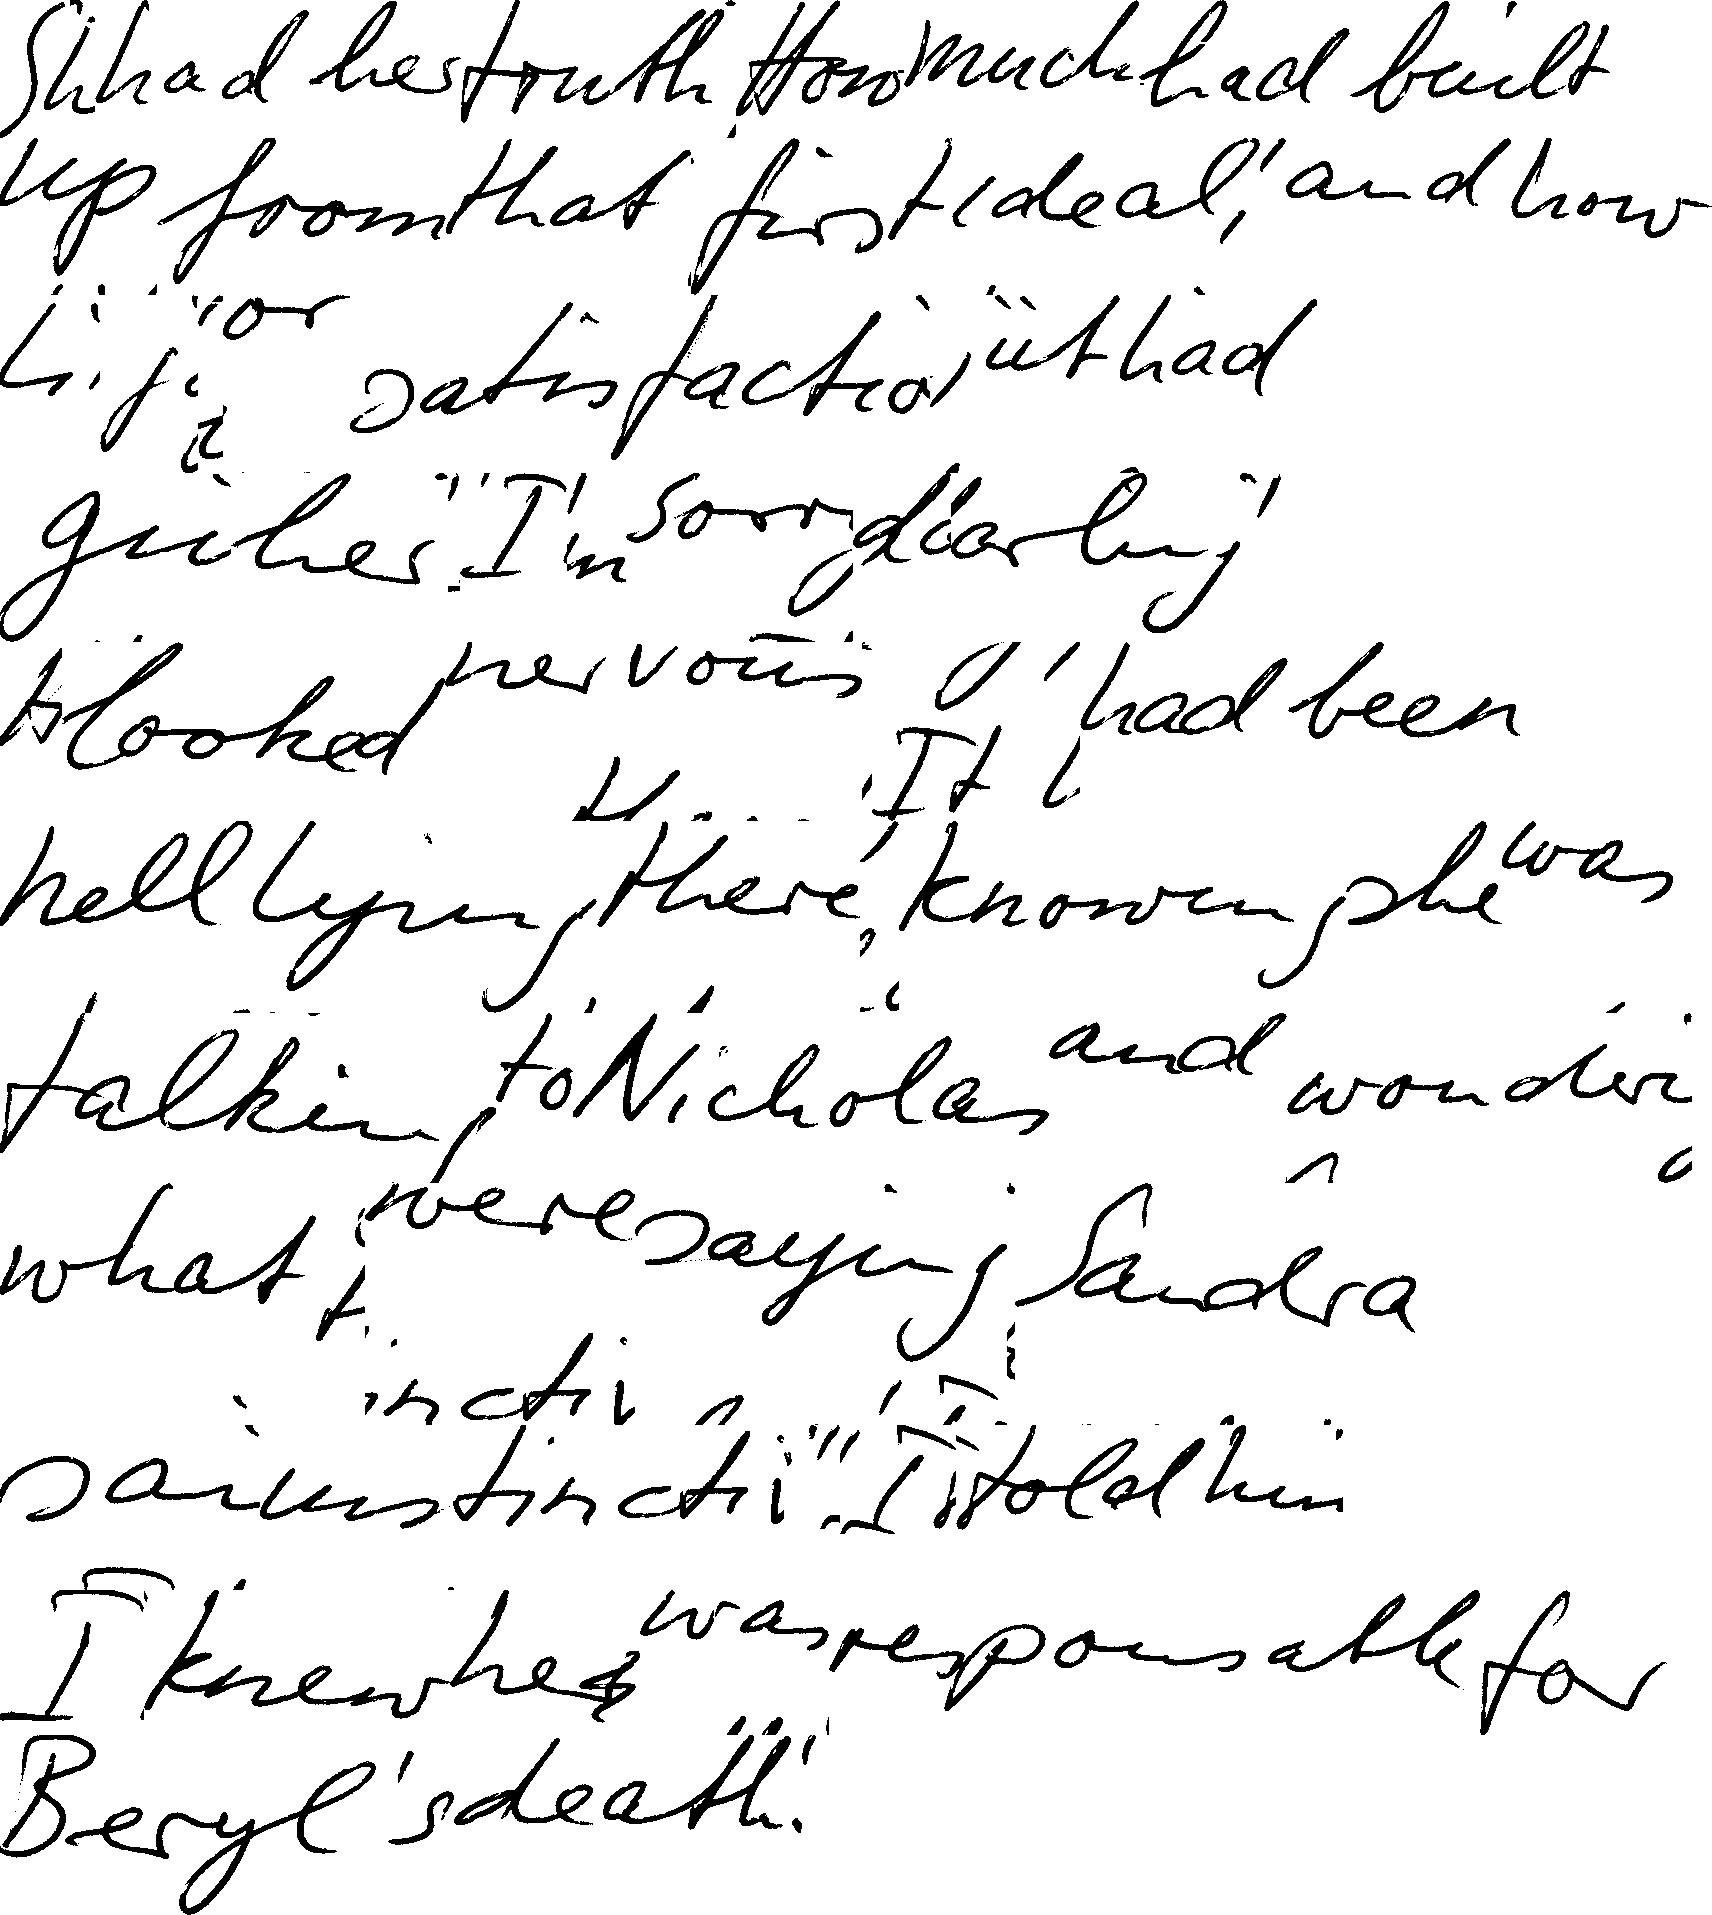 Sh had her truth. How much had built
up from that first ideal, and how
satisfaction it had
her. "I'm sorry darling"
looked nervous. It had been
hell lying there, knowing she was
talking to Nicholas and wondering
what were saying. Sandra
"I told him
I knew he was responsable for
Beryl's death."